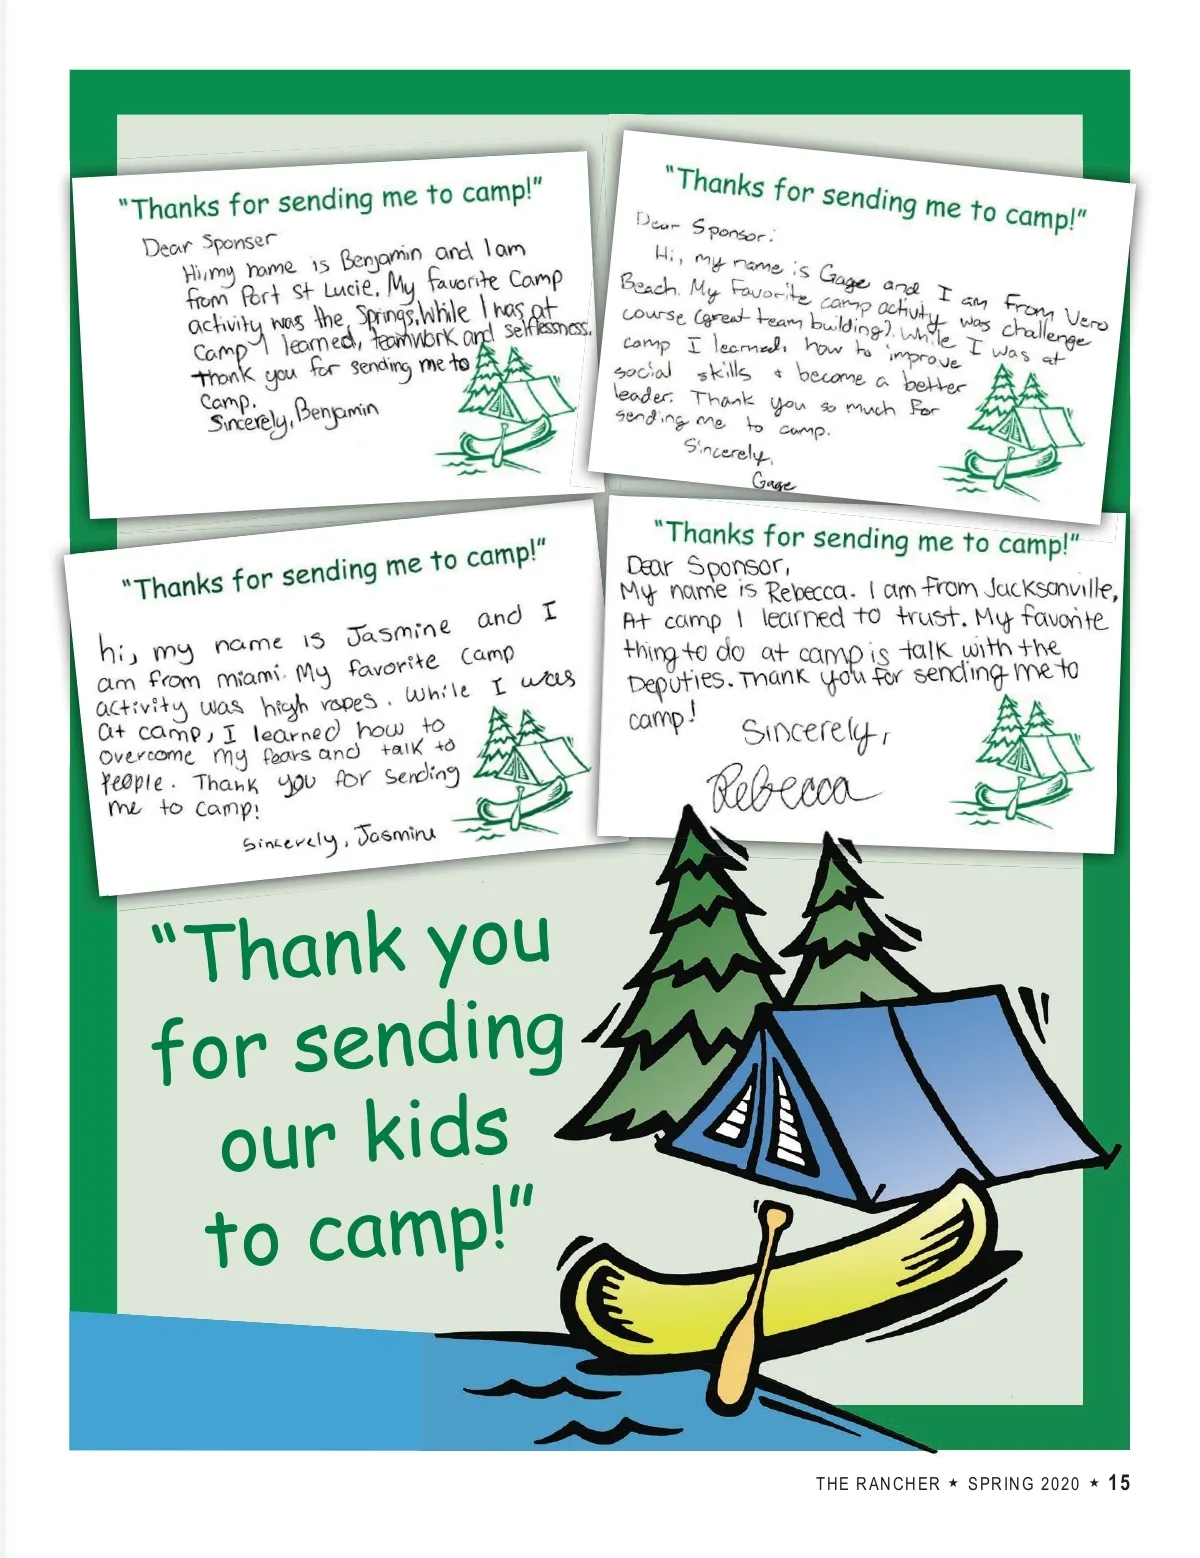 "Thanks for sending me to camp!"
Dear Sponser
Hi, my name is Benjamin and I am
from Port St Lucie. My favorite Camp
activity was the Springs. While I was at
camp I learned, teamwork and selflessness.
thank you for sending me to
camp.
Sincerely, Benjamin
"Thanks for sending me to camp!"
Dear Sponsor:
Hi, my name is Gage and I am from Vero
Beach. My Favorite camp activity was challenge
course (great team building). While I was at
camp I learned, how to improve
social skills & become a better
leader. Thank you so much for
sending me to camp.
Sincerely,
Gage
"Thanks for sending me to camp!"
hi, my name is Jasmine and I
am from miami. My favorite camp
activity was high ropes. While I was
at camp, I learned how to
overcome my fears and talk to
People. Thank you for sending
me to camp!
Sincerely, Jasmine
"Thanks for sending me to camp!"
Dear Sponsor,
My name is Rebecca. I am from Jacksonville,
At camp I learned to trust. My favorite
thing to do at camp is talk with the
Deputies. Thank you for sending me to
camp!
Sincerely,
Rebecca
"Thank you
for sending
our kids
to camp!"
THE RANCHER ★ SPRING 2020 ★ 15